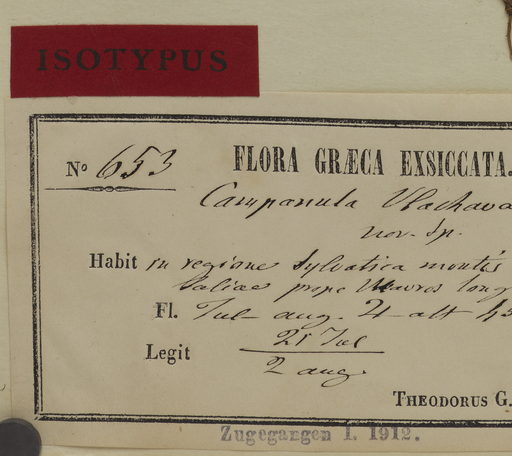 ISOTYPUS
FLORA GRÆCA EXSICCATA.
No 653
Campanula Vlachava
nov. Sp.
Habit in regione Sylvatica montis
prope Mavros long
Fl. Jul - aug. 4 alt
Legit 25 Jul
2 aug.
THEODORUS G.
Zugegangen I. 1912.